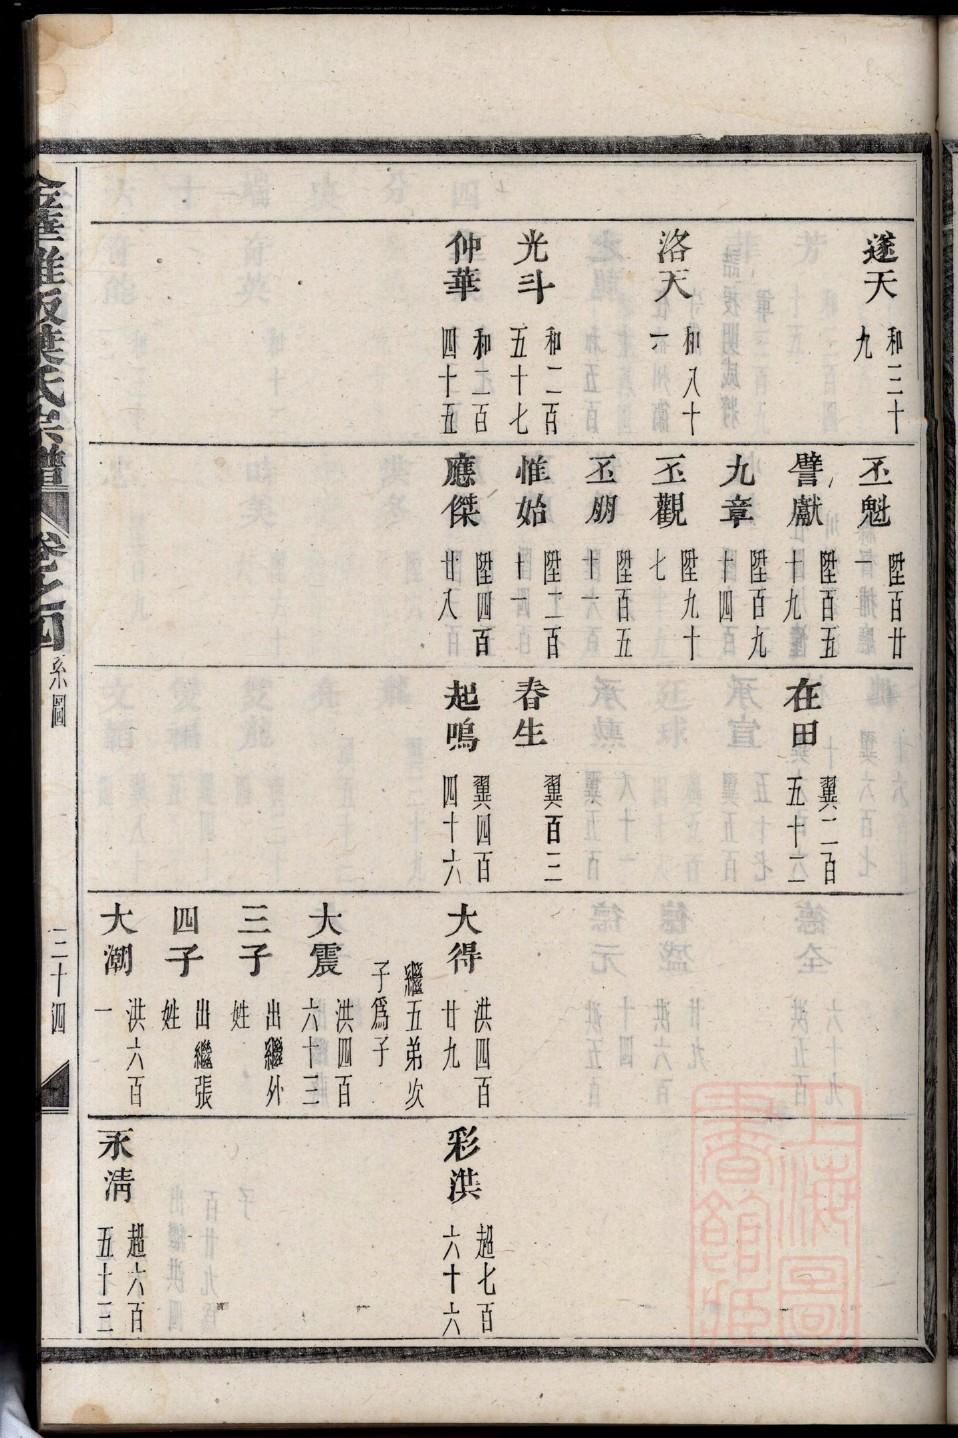 遂天 和三十九
洛天 和八十一
光斗 和二百五十七
仲華 和二百四十五
丕魁 陞百廿一
譬獻 陞百五十九
九章 陞百九十四
丕觀 陞九十七
丕朋 陞百五十一
惟始 陞二百十一
應傑 陞四百廿八
在田 翼二百五十二
春生 翼百三
起鳴 翼四百四十六
大得 洪四百廿九
繼五弟次子爲子
大震 洪四百六十三
三子 出繼外姓
四子 出繼張姓
大潮 洪六百一
彩洪 超七百六十六
永清 超六百五十三
葉氏宗譜 卷之四 系圖 三十四
上海圖書館藏